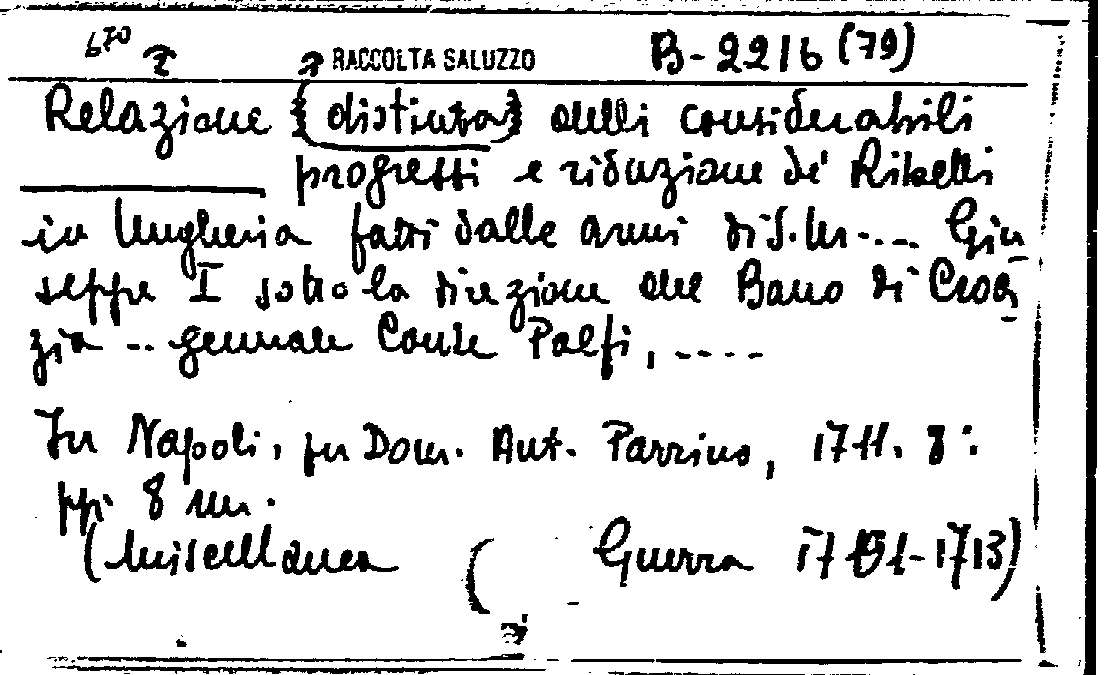 670 RACCOLTA SALUZZO B-2216 (79)
Relazione {(distinta)} delli considerabili
progressi e riduzione de' Ribelli
in Ungheria fatti dalle armi di S. M. .... Giu
seppe I sotto la direzione del Bano di Croa
zia .. generale Conte Palfi, ....
In Napoli, per Dom. Ant. Parrino, 1711. 8°.
pp. 8 nn.
(Miscellanea ( Guerra 1701-1713)